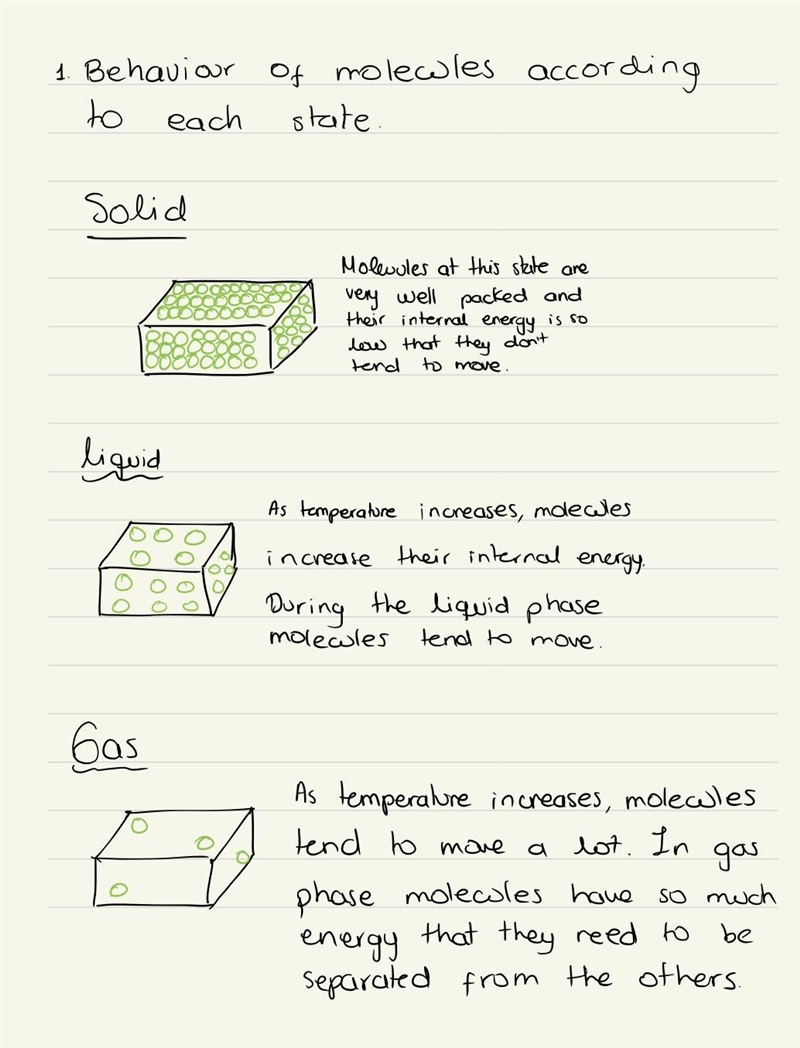 1. Behaviour of molecules according
to each state.
Solid
Molecules at this state are
very well packed and
their internal energy is so
low that they don't
tend to move.
liquid
As temperature increases, molecules
increase their internal energy.
During the liquid phase
molecules tend to move.
Gas
As temperature increases, molecules
tend to move a lot. In gas
phase molecules have so much
energy that they need to be
separated from the others.